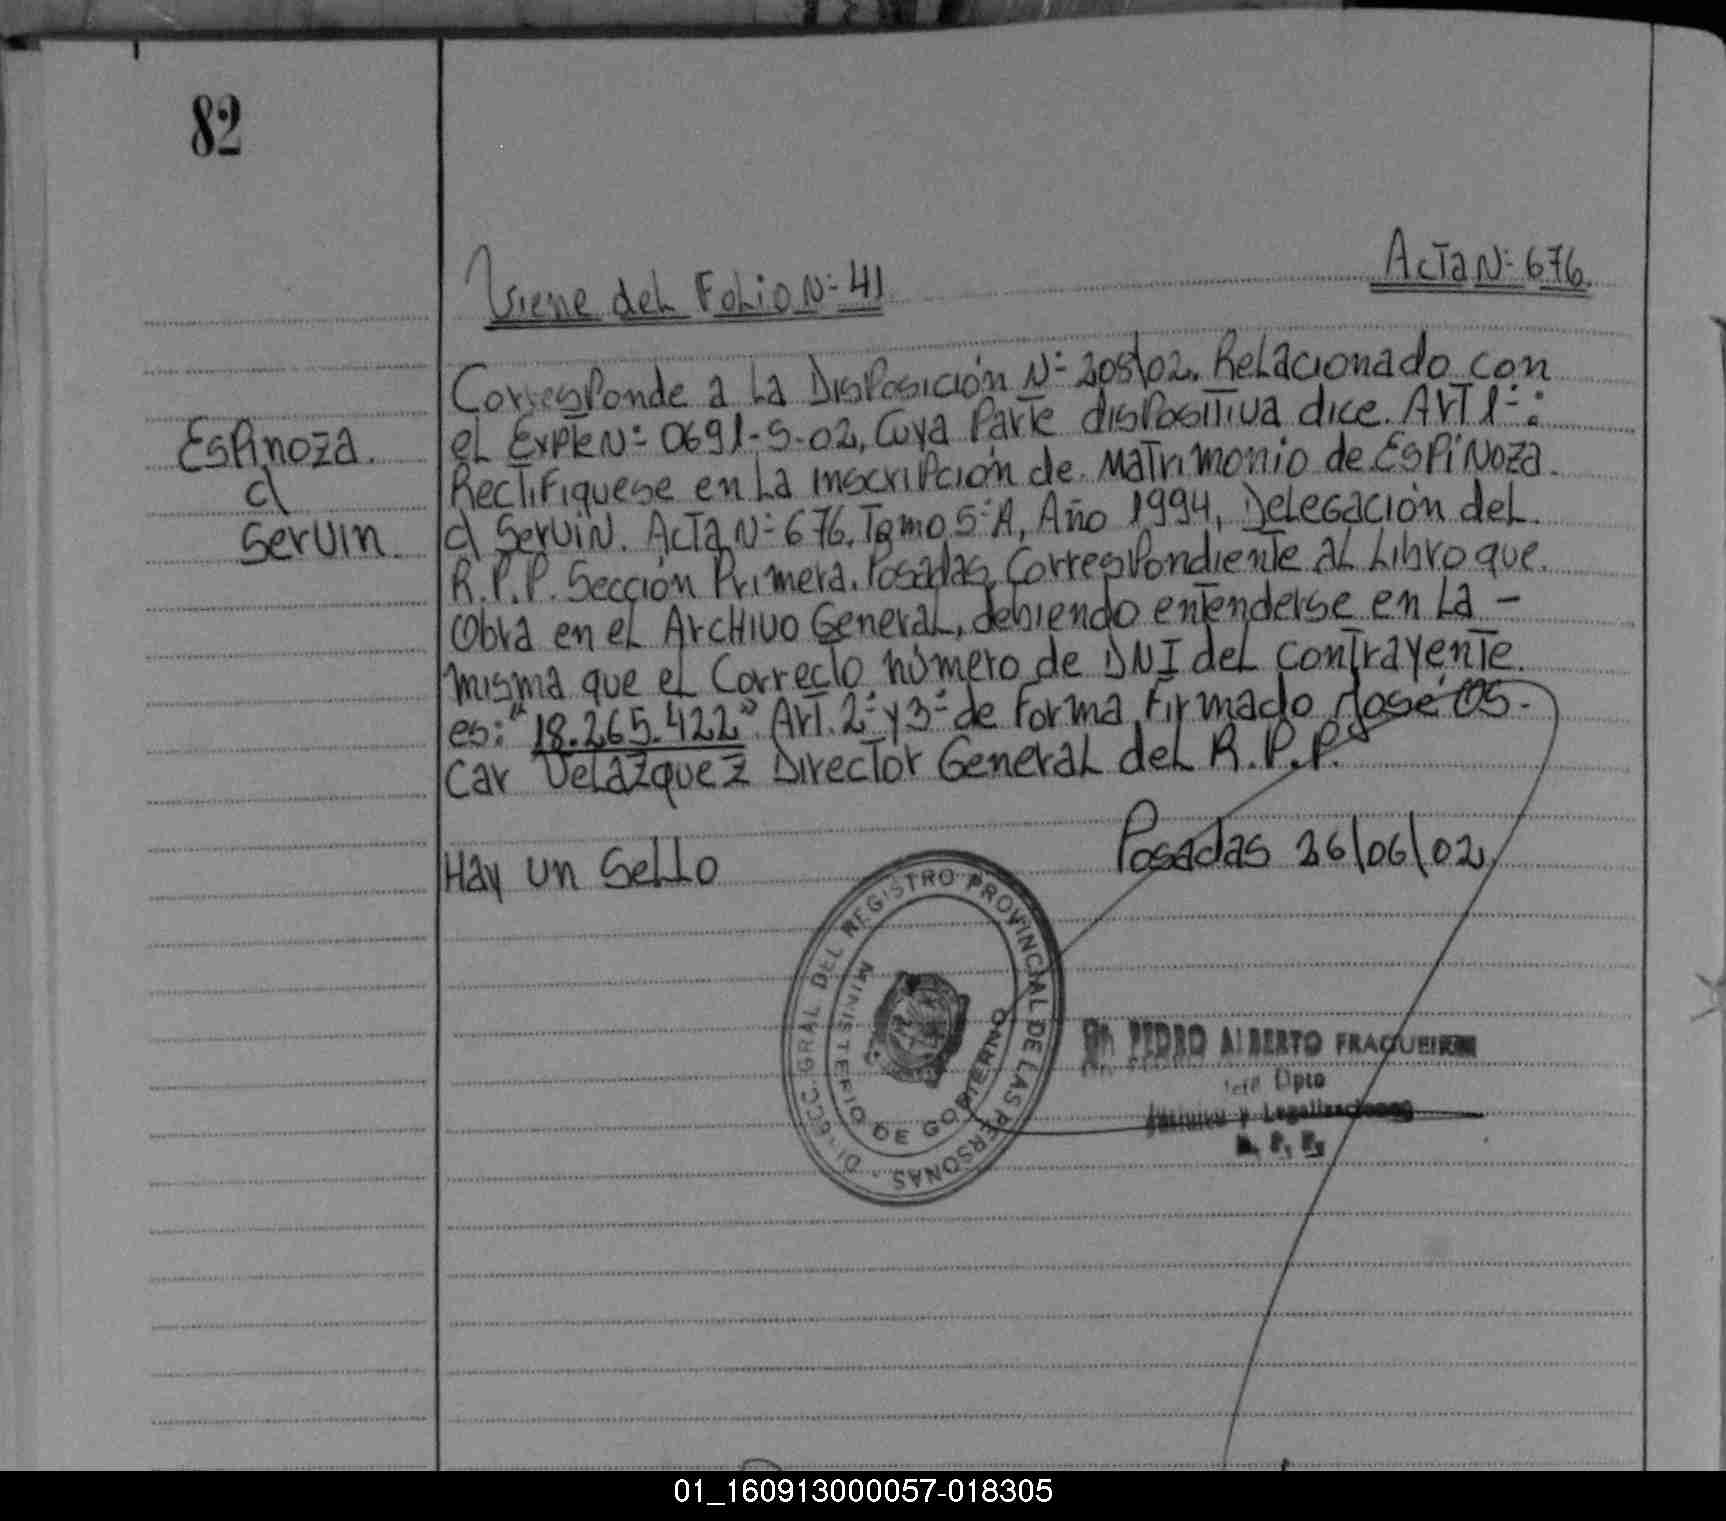 82
Viene del Folio N=41
Acta N= 676
Corresponde a La Disposición N= 205/02. Relacionado con
el Expte N= 0691-S-02, Cuya Parte dispositiva dice. Art 1=:
Espinoza.
Rectifiquese en La inscripción de Matrimonio de Espinoza
c/
c/ Servin. Acta N= 676, Tomo 5=A, Año 1994, Delegación del
Servin
R.P.P. Sección Primera. Posadas, Correspondiente al Libro que
Obra en el Archivo General, debiendo entenderse en La -
misma que el Correcto número de DNI del contrayente
es: "18.265.422" Art. 2= y 3= de Forma Firmado José Os-
car Velazquez Director General del R.P.P.
Hay un Sello
Posadas 26/06/02
DIRECC. GRAL DEL REGISTRO PROVINCIAL DE LAS PERSONAS
MINISTERIO DE GOBIERNO
PEDRO ALBERTO FRAQUEIRO
Jefe Dpto
Archivo y Legalizaciones
R. P. P.
01_160913000057-018305